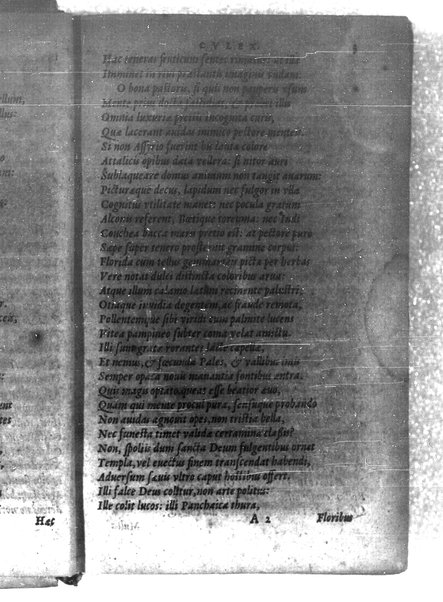 CVLEX.
Haec teneras fruticum sentes rimatur: at illa
Imminet in riui praestantis imaginis vndam.
O bona pastoris, si quis non pauperis vsum
Mente prius docta fastidiat, & probet illis
Omnia luxuriae pretiis incognita curis,
Quae lacerant auidas inimico pectore mentes.
Si non Assyrio fuerint bis lauta colore
Attalicis opibus data vellera: si nitor auri
Sublaqueare domus animum non tangit auarum:
Picturaeque decus, lapidum nec fulgor in vlla
Cognitus vtilitate manet: nec pocula gratum
Alconis referent, Boëtique toreuma: nec Indi
Conchea bacca maris pretio est: at pectore puro
Saepe super tenero prosternit gramine corpus:
Florida cum tellus gemmantes picta per herbas
Vere notat dulci distincta coloribus arua:
Atque illum calamo laetum recinente palustri,
Otiaque inuidia degentem, ac fraude remota,
Pollentemque sibi viridi cum palmite lucens
Vitea pampineo subter coma velat amictu.
Illi sunt gratae rorantes lacte capellae,
Et nemus, & foecunda Pales, & vallibus imis
Semper opaca nouis manantia fontibus antra.
Quis magis optato queat esse beatior aeuo,
Quam qui mente procul pura, sensuque probando
Non auidas agnouit opes, non tristia bella,
Nec funesta timet validae certamina classis?
Non, spoliis dum sancta Deum fulgentibus ornet
Templa, vel euectus finem transcendat habendi,
Aduersum saeuis vltro caput hostibus offert.
Illi falce Deus colitur, non arte politus:
Ille colit lucos: illi Panchaica thura,
A 2
Floribus
ellum,
llus:
Haec